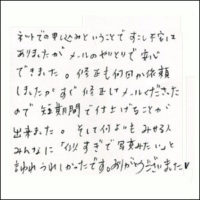 ネットでの申し込みということですこし不安は
ありましたがメールのやりとりで安心
できました。修正も何回か依頼
しましたがすぐ修正しメールくださった
ので短期間で仕上げることが
出来ました。そして何よりもみせる人
みんなに「似すぎで写真みたい」と
言われうれしかったです。ありがとうございました